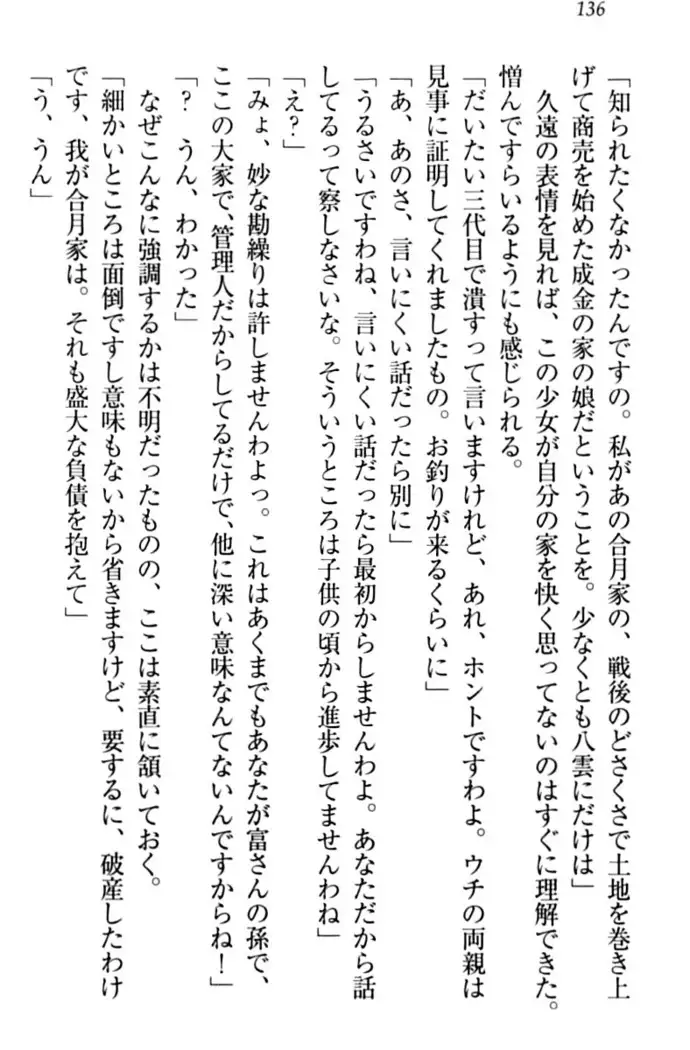 136
「知られたくなかったんですの。私があの合月家の、戦後のどさくさで土地を巻き上
げて商売を始めた成金の家の娘だということを。少なくとも八雲にだけは」
　久遠の表情を見れば、この少女が自分の家を快く思ってないのはすぐに理解できた。
憎んですらいるようにも感じられる。
「だいたい三代目で潰すって言いますけれど、あれ、ホントですわよ。ウチの両親は
見事に証明してくれましたもの。お釣りが来るくらいに」
「あ、あのさ、言いにくい話だったら別に」
「うるさいですわね、言いにくい話だったら最初からしませんわよ。あなただから話
してるって察しなさいな。そういうところは子供の頃から進歩してませんわね」
「え?」
「みょ、妙な勘繰りは許しませんわよっ。これはあくまでもあなたが富さんの孫で、
ここの大家で、管理人だからしてるだけで、他に深い意味なんてないんですからね!」
「?　うん、わかった」
　なぜこんなに強調するかは不明だったものの、ここは素直に頷いておく。
「細かいところは面倒ですし意味もないから省きますけど、要するに、破産したわけ
です、我が合月家は。それも盛大な負債を抱えて」
「う、うん」